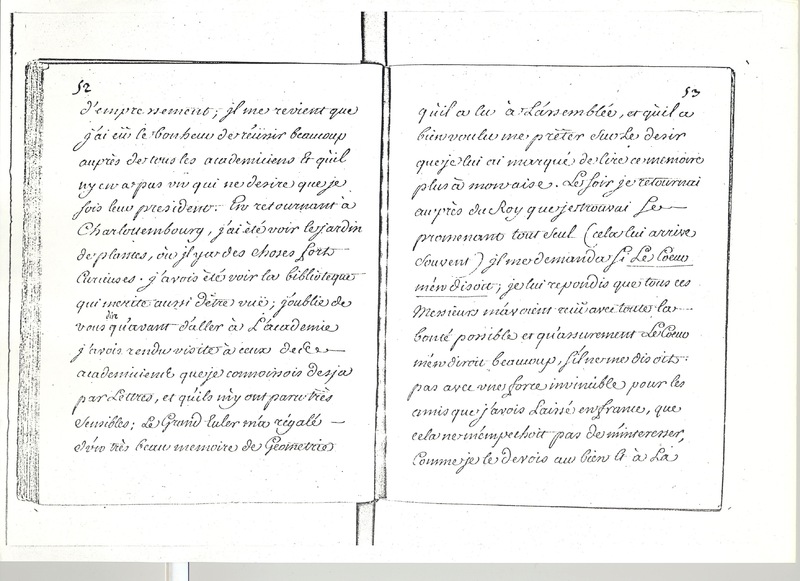 52
d'empressement; jl me revient que
j'ai eû le bonheur de reüssir beaucoup
auprès de tous les academiciens & qu'il
n'y en a pas un qui ne desire que je
sois leur president. En retournant à
Charlottembourg, j'ai été voir le jardin
de plantes, où il y a des choses fort
Curieuses. j'avois été voir la biblioteque
qui merite aussi d'être vuë; j'oublie de
vous dire qu'avant d'aller à L'academie
j'avois rendu visite à ceux de
academiciens que je connoissois desja
par Lettres, et qu'ils m'y ont paru très
sensibles; Le Grand Euler m'a régalé
d'un très beau memoire de Geometrie
53
qu'il a lu à L'assemblée, et qu'il a
bien voulu me prêter sur Le desir
que je lui ai marqué de lire ce memoire
plus à mon aise. Le soir je retournai
auprès du Roy que je trouvai se
promenant tout seul (cela lui arrive
souvent) jl me demanda si Le Coeur
m'en disoit; je lui repondis que tous ces
Messieurs m'avoient reçû avec toute la
bonté possible et qu'assurement Le Coeur
m'en diroit beaucoup, s'il ne me disoit
pas avec une force invincible pour les
amis que j'avois Laissé en france, que
cela ne m'empechoit pas de m'interesser,
Comme je le devois au bien & à La